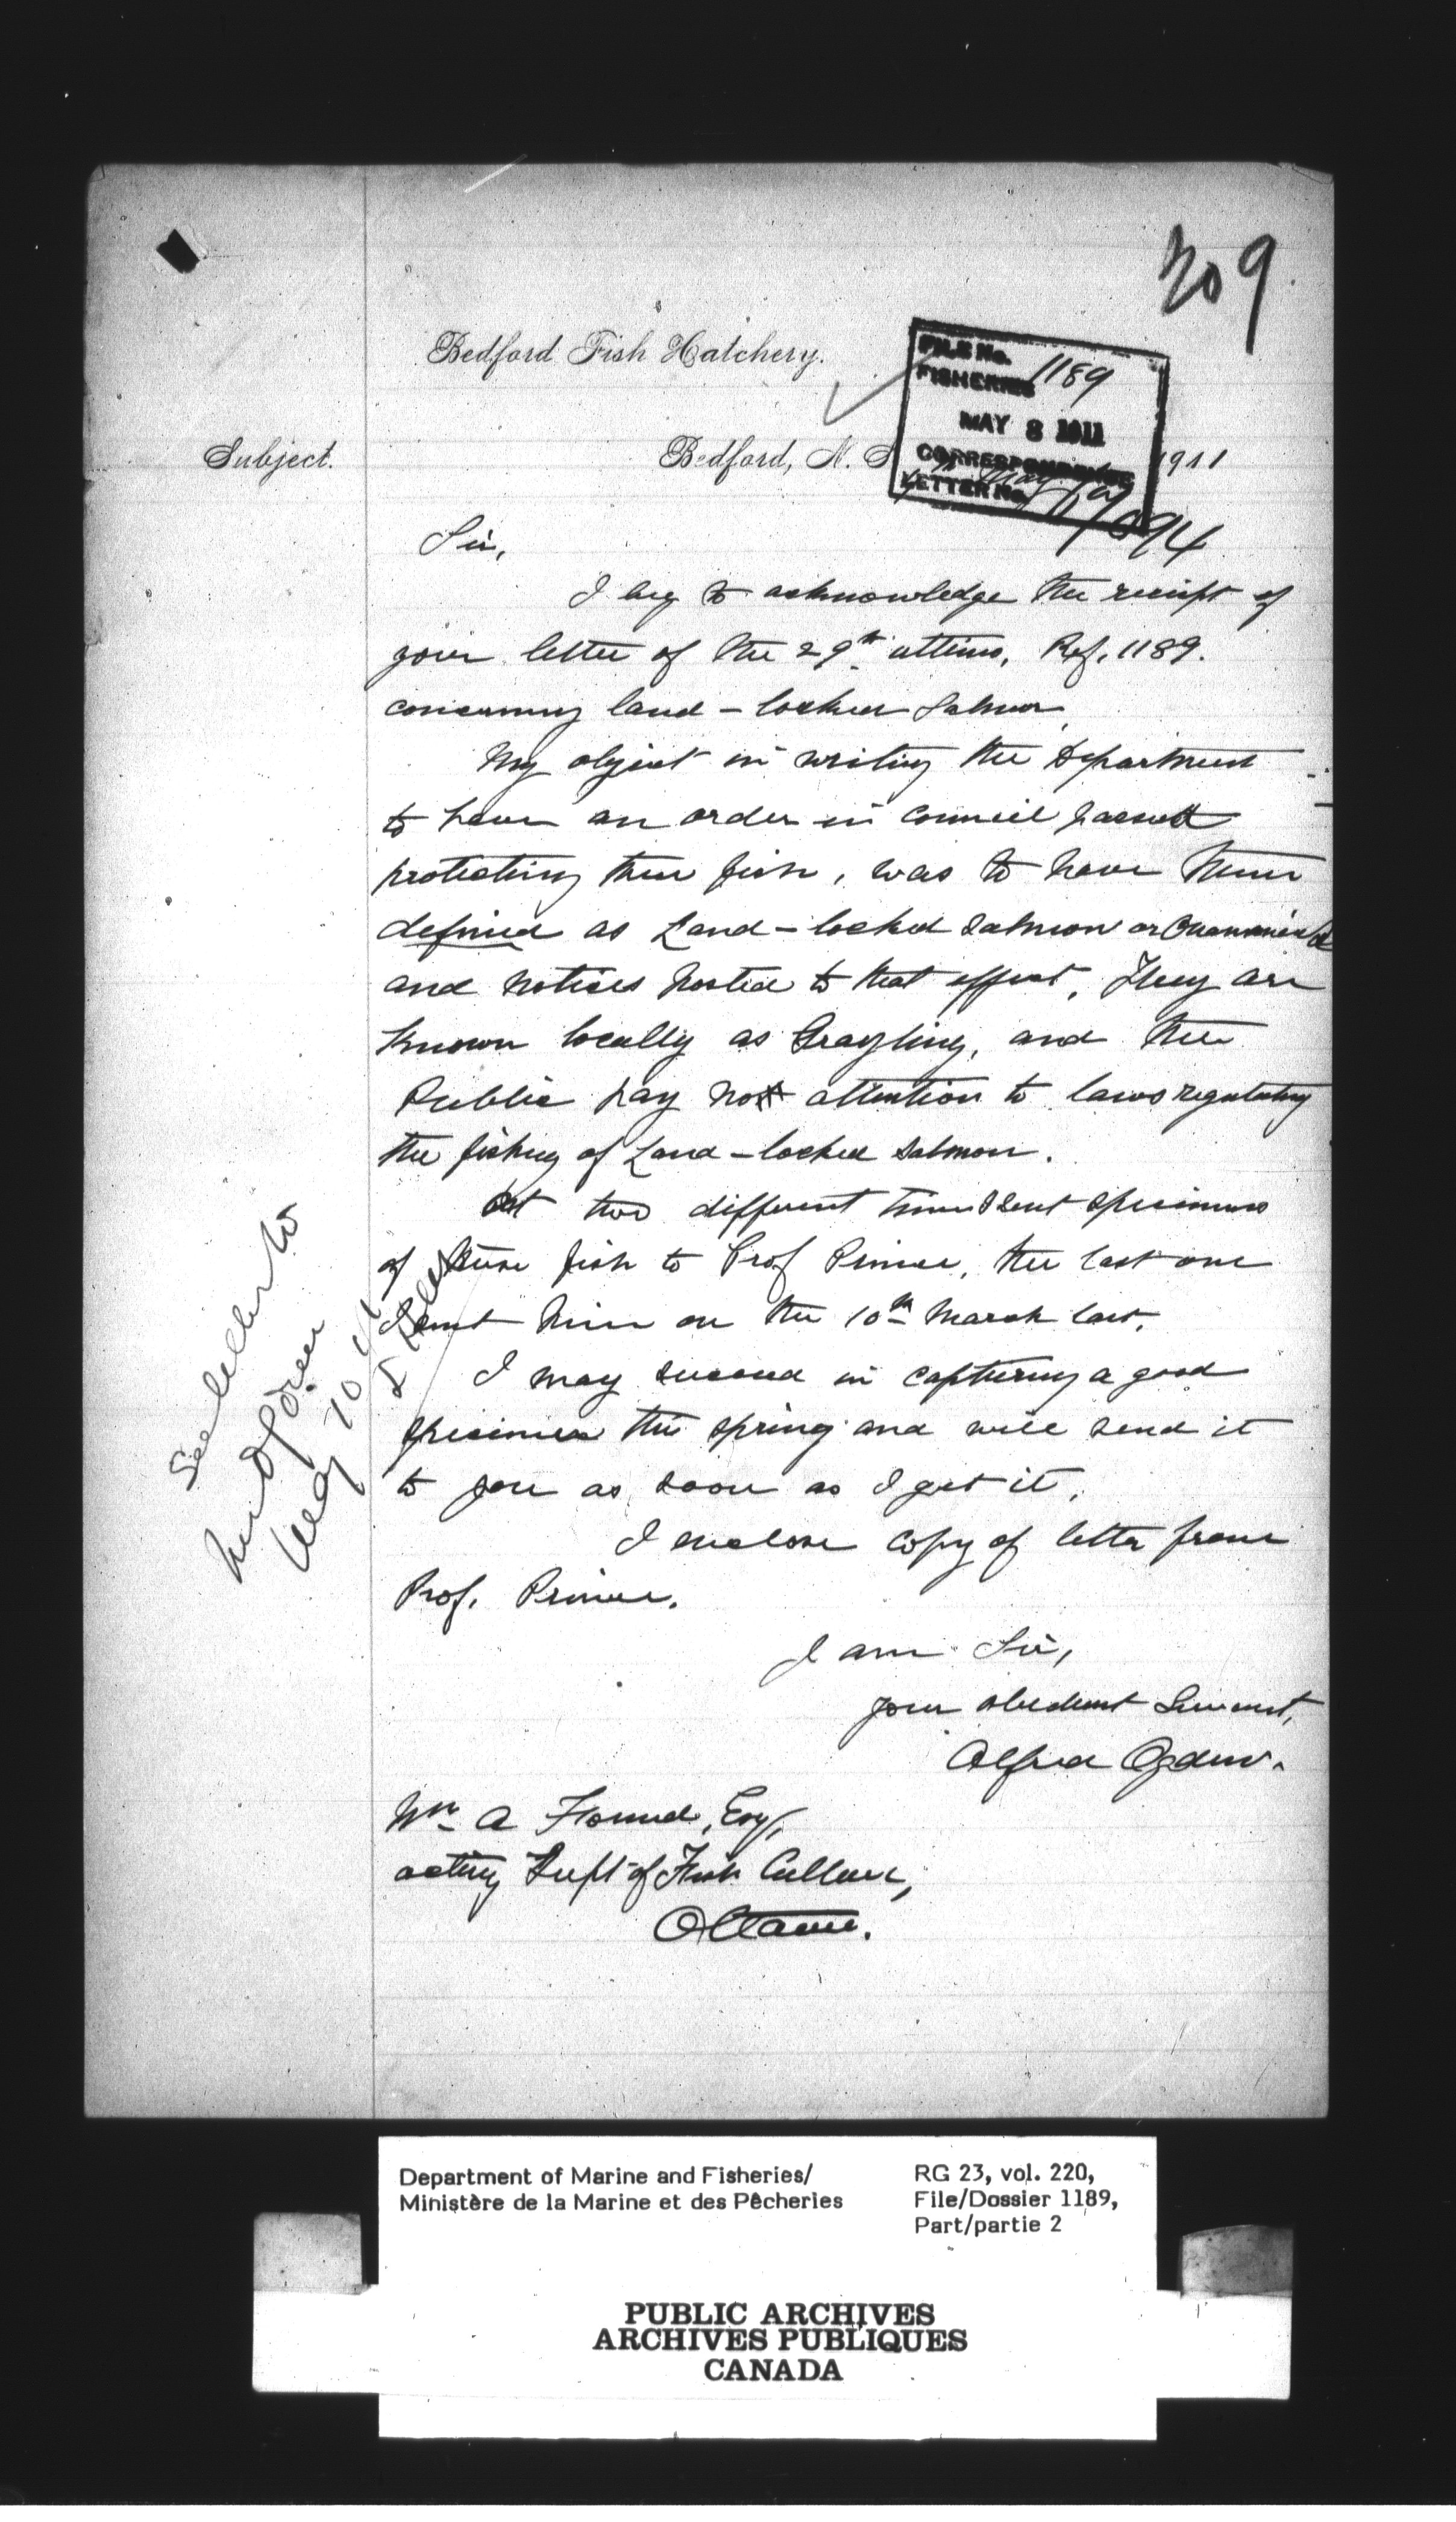 309
Bedford Fish Hatchery.
FILE No. 1189
FISHERIES
MAY 8 1911
CORRESPONDENCE
LETTER No.
Subject.
Bedford, N. S
May 1911
Sir,
I beg to acknowledge the receipt of
your letter of the 29th ultimo, Ref. 1189.
concerning land-locked Salmon,
My object in writing the Department
to have an order in council passed
protecting these fish, was to have them
defined as Land-locked salmon or
and notices posted to that effect. They are
known locally as Grayling, and the
Public pay no attention to laws regulating
the fishing of Land-locked salmon.
At two different times I sent specimens
of these fish to Prof Prince, the last one
I sent him on the 10th March last.
I may succeed in capturing a good
specimen this spring and will send it
to you as soon as I get it.
I enclose copy of letter from
Prof. Prince.
I am Sir,
your obedient Servant,
Alfred Ogden.
Wm A Found, Esq,
acting Supt of Fish Culture,
Ottawa.
See letter to
May 10
Department of Marine and Fisheries/
Ministère de la Marine et des Pêcheries
RG 23, vol. 220,
File/Dossier 1189,
Part/partie 2
PUBLIC ARCHIVES
ARCHIVES PUBLIQUES
CANADA